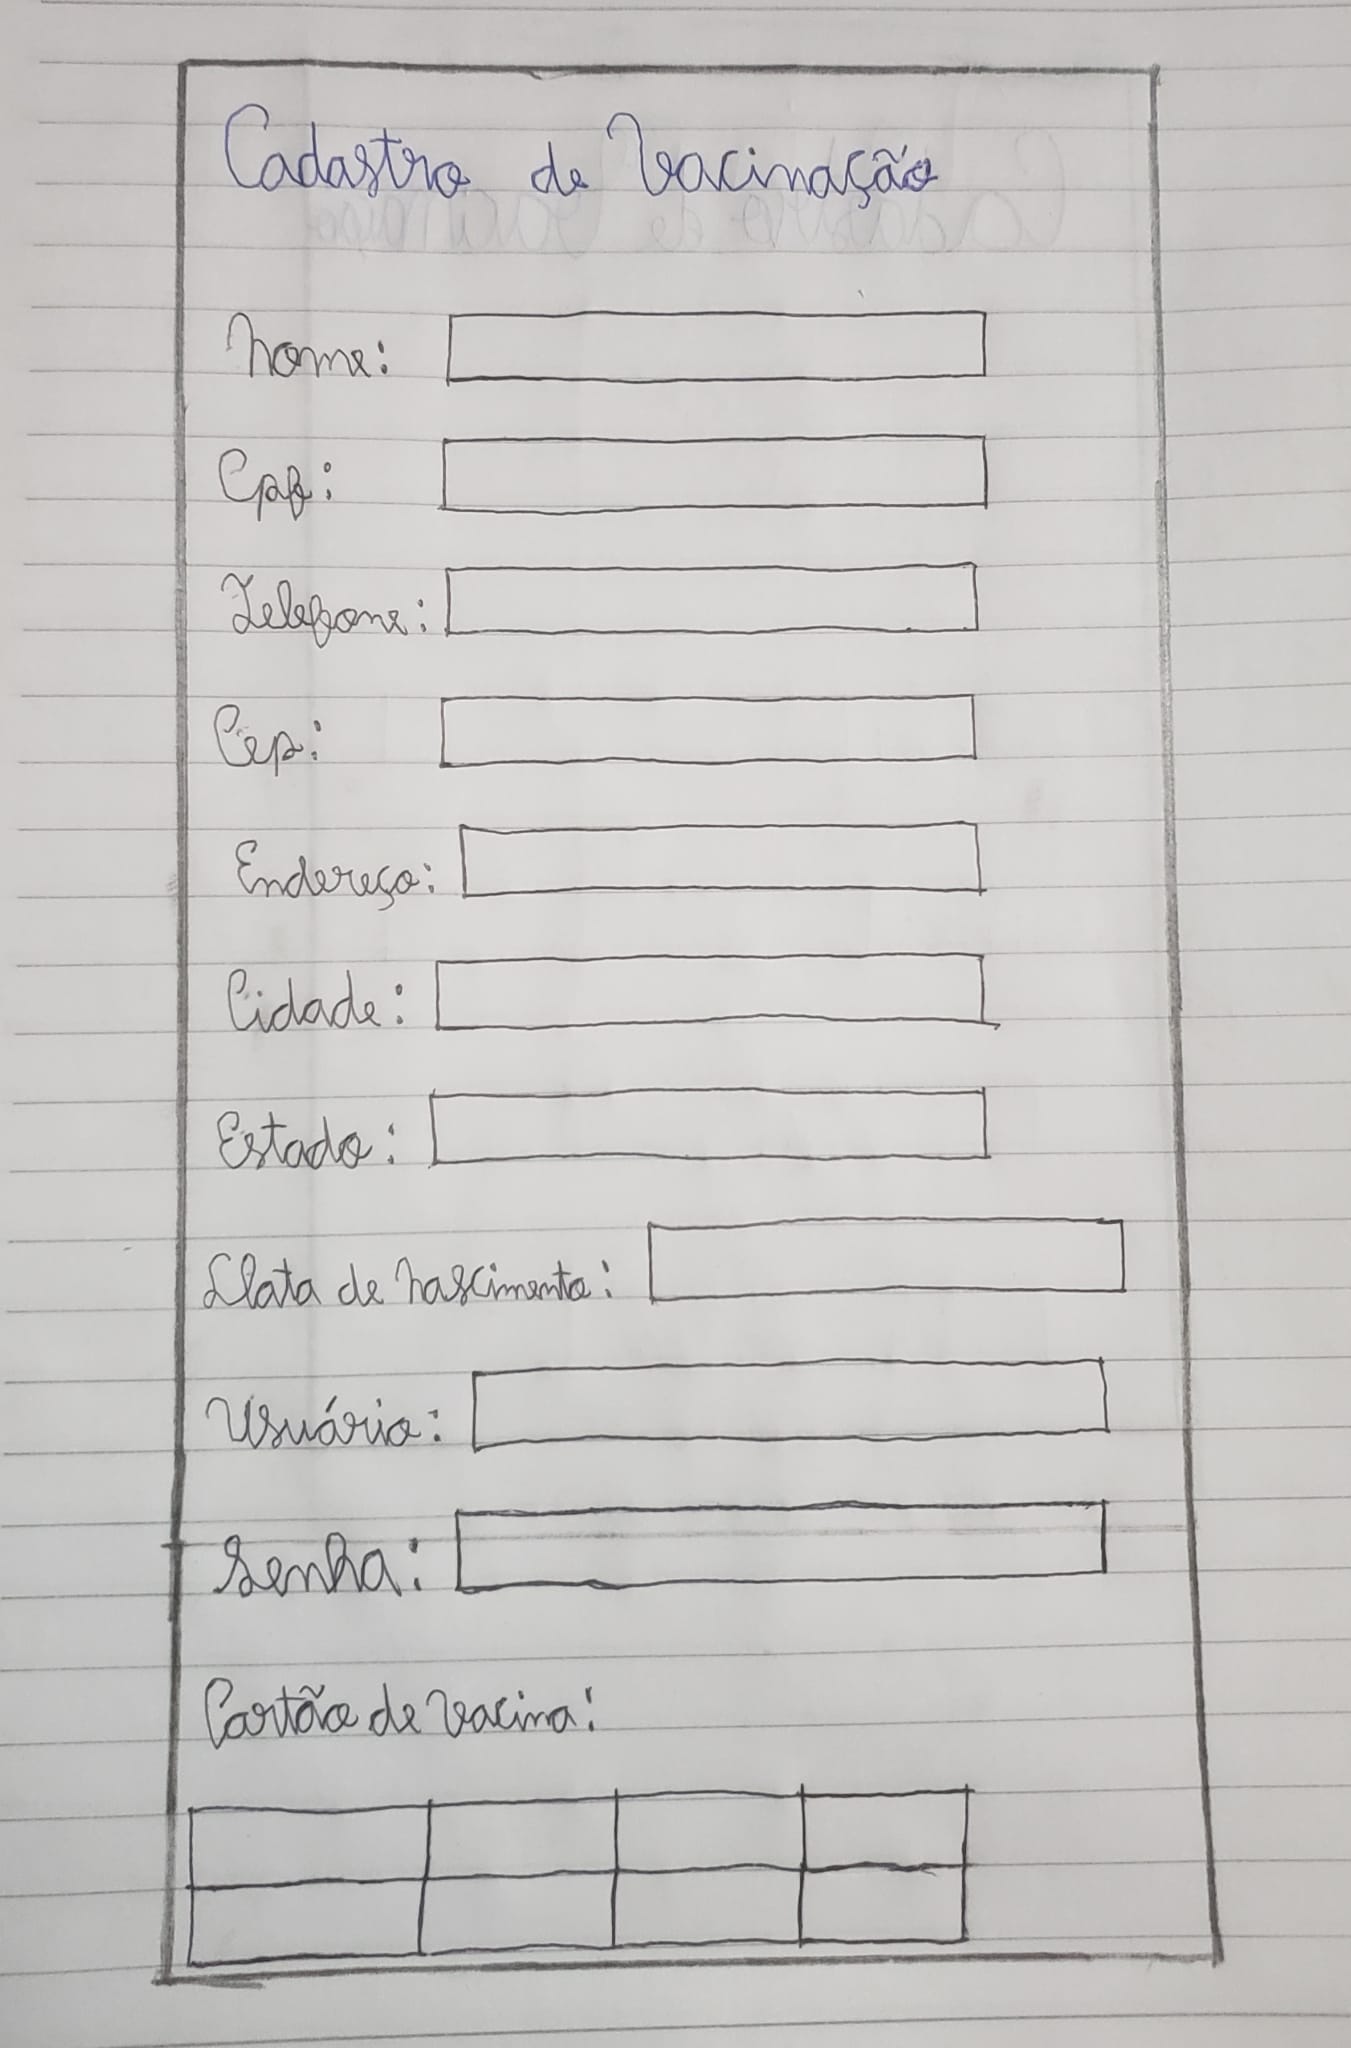 Cadastro de Vacinação
Nome:
Cpf:
Telefone:
Cep:
Endereço:
Cidade:
Estado:
Data de nascimento:
Usuário:
Senha:
Cartão de Vacina: